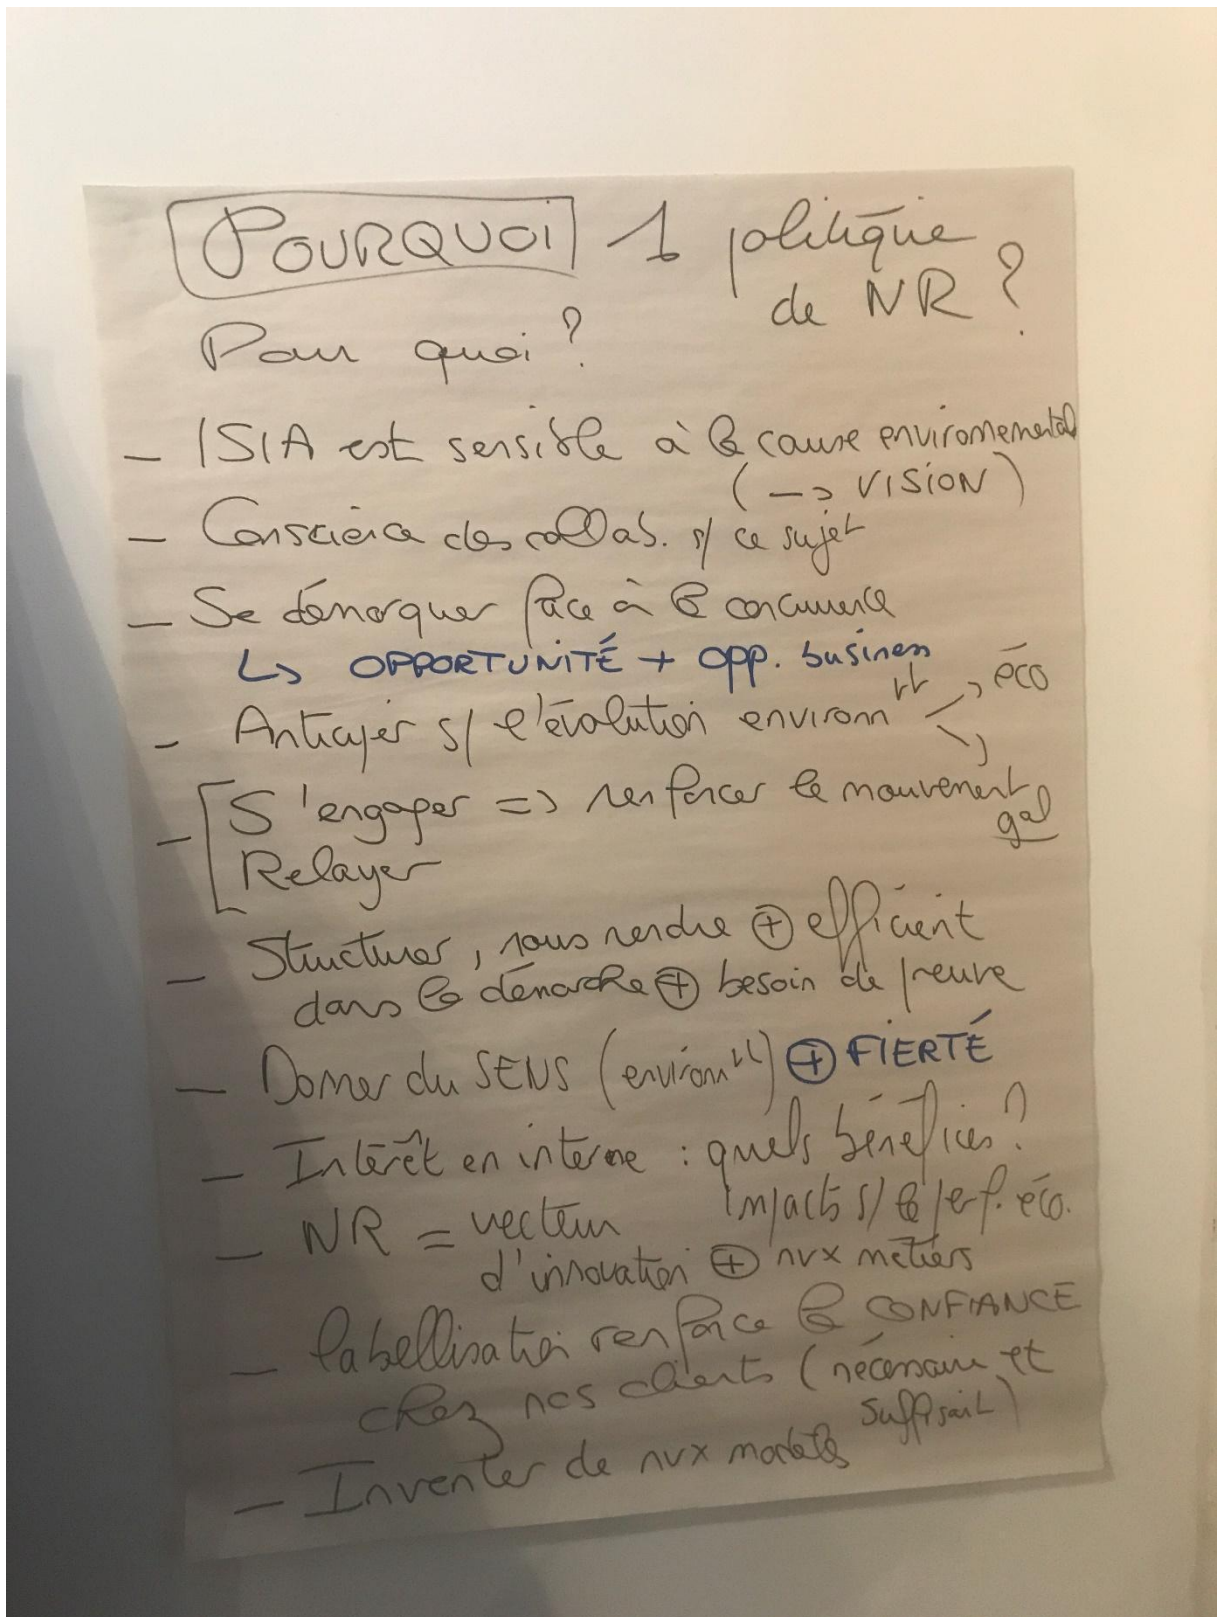 POURQUOI 1 politique
de NR ?
Pour quoi ?
- ISIA est sensible à la cause environnemental
(-> VISION)
- Conscience des collab. s/ ce sujet
- Se démarquer face à la concurrence
↳ OPPORTUNITÉ + opp. business
- Anticiper s/ l'évolution environn^tt -> éco
- S'engager => renforcer le mouvement
gal
Relayer
- Structurer, nous rendre ⊕ efficient
dans la démarche ⊕ besoin de preuve
- Donner du SENS (environ^tt) ⊕ FIERTÉ
- Intérêt en interne : quels bénéfices ?
Impacts s/ la perf. éco.
- NR = vecteur
d'innovation ⊕ nvx métiers
- labellisation renforce la CONFIANCE
chez nos clients (nécessaire et
suffisait)
- Inventer de nvx modèles